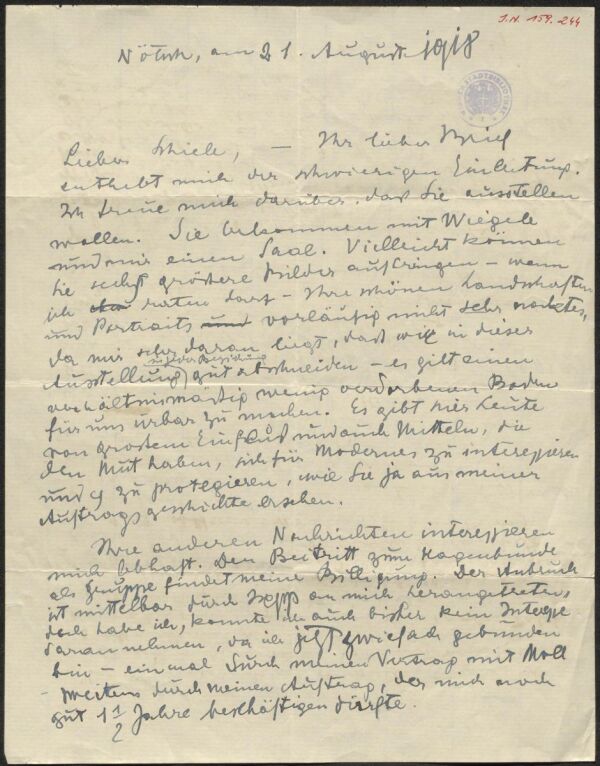 J.N. 159.244
Nötsch, am 21. August 1918
Lieber Schiele, – Ihr lieber Brief
enthebt mich der schwierigen Einleitung.
Ich freue mich darüber, daß Sie ausstellen
wollen. Sie bekommen mit Wiegele
und mir einen Saal. Vielleicht können
Sie sechs grössere Bilder aufbringen – wenn
ich raten darf – Ihre schönen Landschaften
und Portraits und vorläufig nicht sehr nacktes,
da mir sehr daran liegt, daß wir in dieser
Ausstellung (in jeder Beziehung) gut abschneiden – es gilt einen
verhältnismässig wenig verdorbenen Boden
für uns urbar zu machen. Es gibt hier Leute
von grostem Einfluß und auch Mitteln, die
den Mut haben, sich für Modernes zu interessieren
und zu protegieren, wie Sie ja aus meiner
Auftragsgeschichte ersehen.
Ihre anderen Nachrichten interessieren
mich lebhaft. Den Beitritt zum Hagenbunde
als Gruppe findet meine Billigung. Der
ist mittelbar durch an mich herangetreten,
doch habe ich, konnte ich auch bisher kein
daran nehmen, da ich jetzt zwiefach gebunden
bin – einmal durch meinen Vertrag mit Moll
– zweitens durch meinen Auftrag, der mich noch
gut 1 1/2 Jahre beschäftigen dürfte.